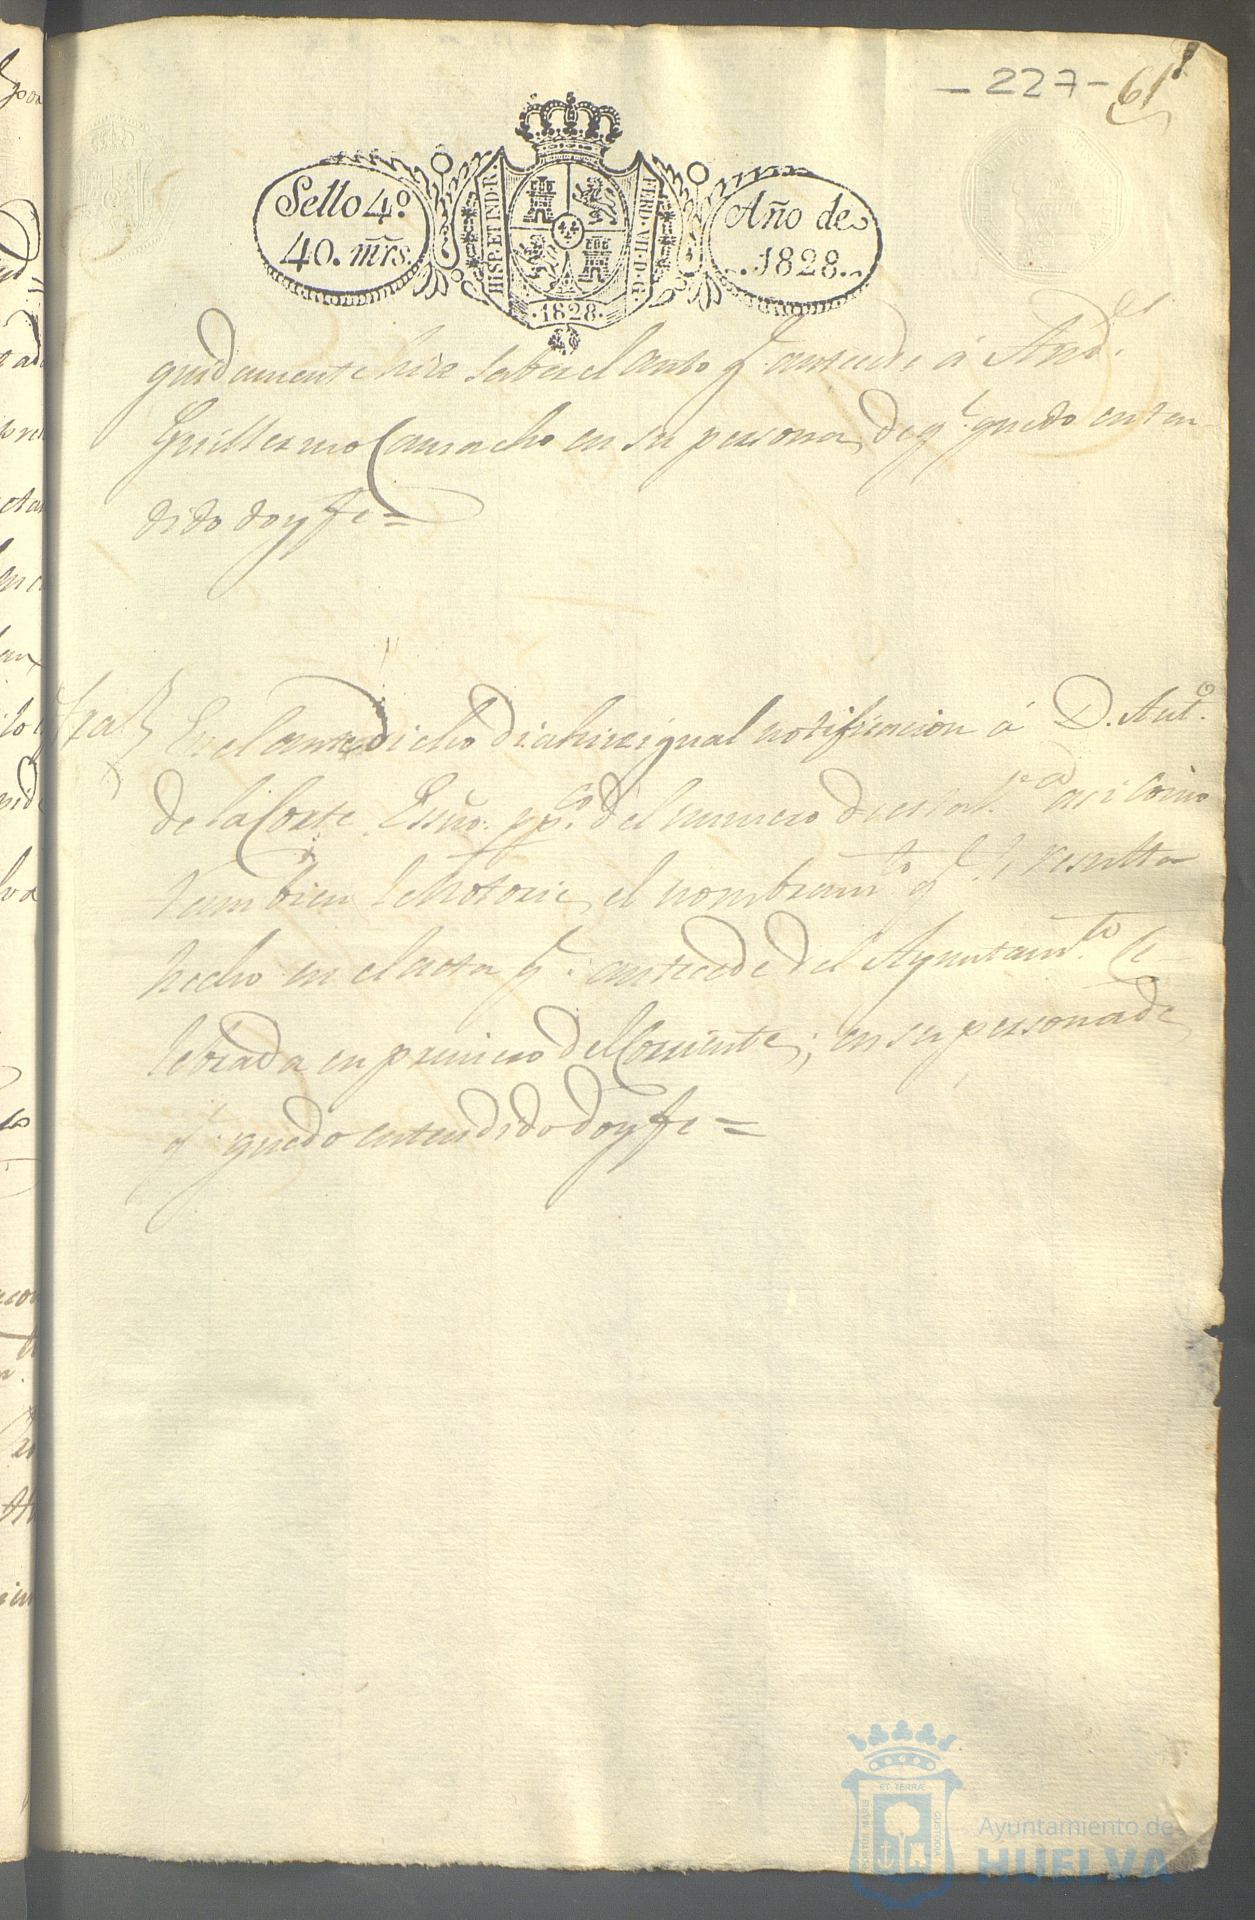 - 227 - 61
Sello 4.º
40. mrs.
HISP. ET IND. R.
FERD. VII. D. G.
·1828·
Año de
1828.
guidamente hice saber el auto q.e antecede á And.es
Guillermo Camacho en su persona, de q.e quedo enten
dido doy fe =
En el antedicho dia hize igual notificacion á D. Ant.o
de la Corte Essno. pp.co del numero de esta asi como
tambien le notorie, el nombram.to q.e resulta
hecho en el acta q.e antecede del Ayuntam.to Ce-
lebrada en primero del Corriente; en su persona de
q.e quedo entendido doy fe =
ET TERRÆ
Ayuntamiento de
HUELVA